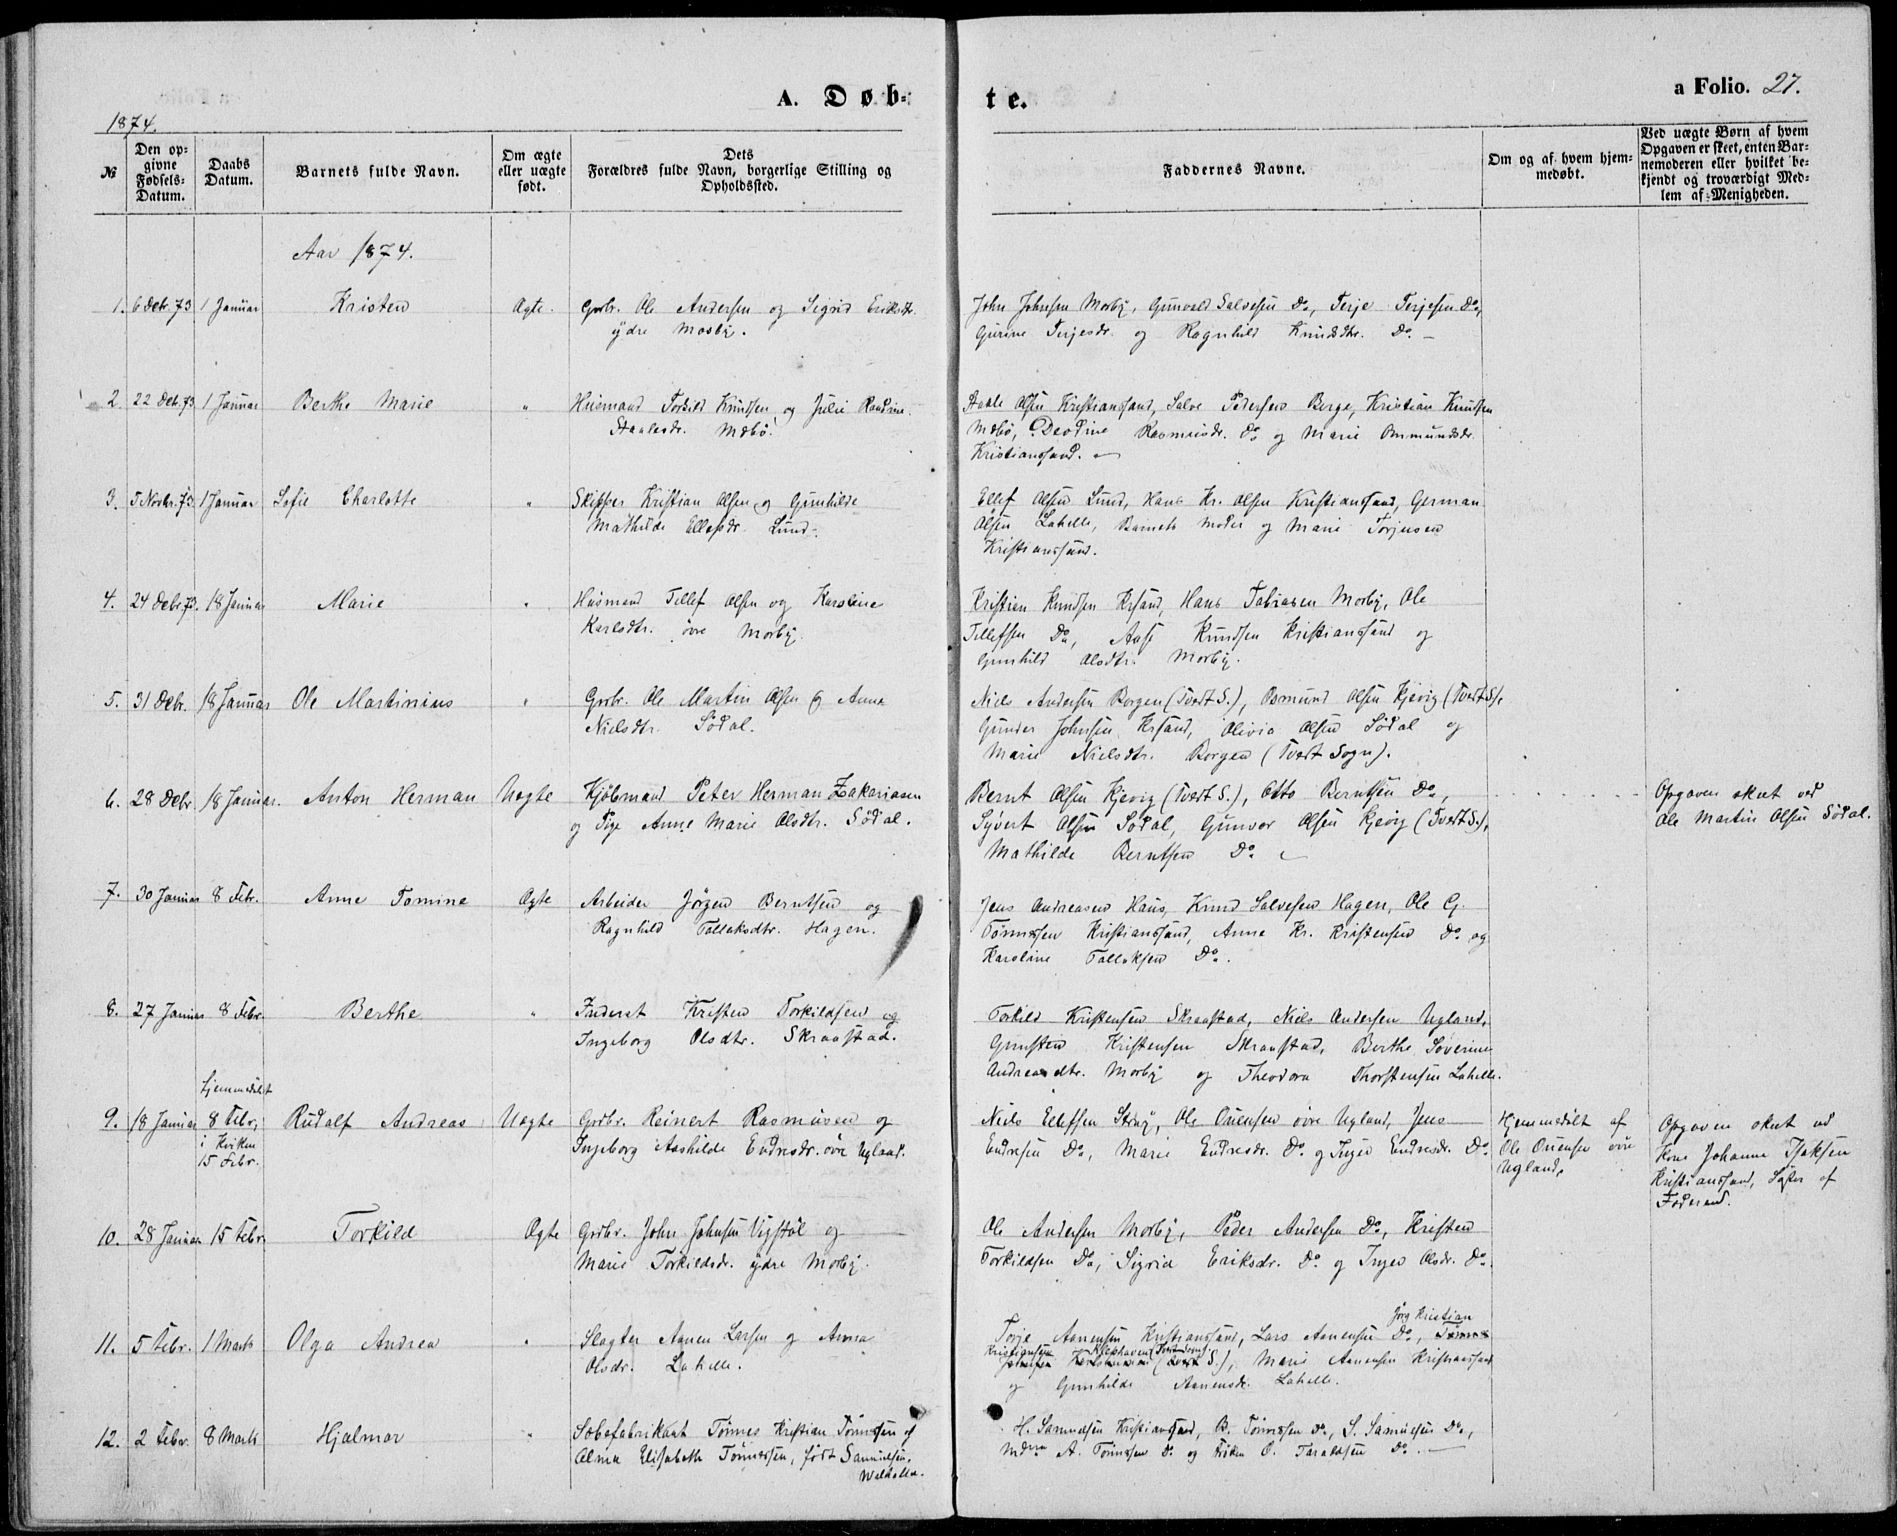 A. Døb-
te.
a Folio. 27.
1874.
№
Den op-
givne
Fødsels-
Datum.
Daabs
Datum.
Barnets fulde Navn.
Om ægte
eller uægte
født.
Dets
Forældres fulde Navn, borgerlige Stilling og
Opholdssted.
Faddernes Navne.
Om og af hvem hjem-
medøbt.
Ved uægte Børn af hvem
Opgaven er skeet, enten Bar-
nemoderen eller hvilket be-
kjendt og troværdigt Med-
lem af Menigheden.
Aar 1874.
1. 6 Debr. 73 1 Januar Kristen Ægte. Grbr. Ole Andersen og Sigrid Eriksdr.
ydre Mosby.
John Johnsen Mosby, Gunvald Salvesen Do, Terje Terjesen Do,
Gurine Terjesdr. og Ragnhild Knudsdtr. Do. —
2. 22 Debr. 73 1 Januar Berthe Marie " Huusmand Torkild Knudsen og Julie
Staalesdr. Mæbø.
Staale Olsen Kristianssand, Salve Pedersen Berge, Kristian Knudsen
Mæbø, Do og Marie Osmundsdr.
Kristianssand. —
3. 5 Novbr. 73 1 Januar Sofie Charlotte " Skipper Kristian Olsen og Gunhilde
Mathilde Ellefsdr. Lund.
Ellef Olsen Lund, Hans Kr. Olsen Kristianssand, German
Olsen Lahelle, Barnets Moder og Marie Torjusen
Kristianssand.
4. 24 Debr. 73. 18 Januar Marie " Husmand Tellef Olsen og Karoline
Karlsdtr. øvre Mosby.
Kristian Knudsen Krsand, Hans Tobiasen Mosby, Ole
Tellefsen Do, Aase Knudsen Kristianssand og
Gunhild Olsdtr. Mosby.
5. 31 Debr. 18 Januar Ole Martinius " Grbr. Ole Martin Olsen og Anne
Nielsdtr. Sødal.
Niels Andersen Borgen (Tvedt S.), Osmund Olsen Kjevig (Tvedt S.),
Gunder Johnsen Krsand, Olivia Olsen Sødal og
Marie Nielsdtr. Borgen (Tvedt Sogn).
6. 28 Debr 18 Januar. Anton Herman Uægte Kjøbmand Peter Herman Zakariasen
og Pige Anne Marie Olsdtr. Sødal.
Bernt Olsen Kjevig (Tvedt S.), Otto Berntsen Do,
Syvert Olsen Sødal, Gunvor Olsen Kjevig (Tvedt S.),
Mathilde Berntsen Do. —
Opgaven skeet ved
Ole Martin Olsen Sødal.
7. 30 Januar 8 Febr. Anne Tomine Ægte Arbeider Jørgen Berntsen og
Ragnhild Tallaksdtr. Hagen.
Jens Andreasen Haus, Knud Salvesen Hagen, Ole G.
Tønnesen Kristianssand, Anne Kr. Kristensen Do. og
Karoline Tallaksen Do.
8. 27 Januar 8 Febr. Berthe " Inderst Kristen Torkildsen og
Ingeborg Olsdtr. Skraastad.
Torkild Kristensen Skraastad, Niels Andersen Ugland,
Gunsten Kristensen Skraastad, Berthe Severine
Andreasdtr. Mosby og Theodora Thorstensen Lahelle.
9. 18 Januar hjemmedøbt
8 Febr,
i Kirken
15 Febr. Rudolf Andreas Uægte Grdbr. Reinert Rasmusen og
Ingeborg Aashilde Endresdr. øvre Ugland.
Niels Ellefsen Stray, Ole Ouensen øvre Ugland, Jens
Endresen Do, Marie Endresdr. Do. og Inger Endresdr. Do.
Hjemmedøbt af
Ole Ouensen øvre
Ugland.
Opgaven skeet ved
Kone Johanne Isaksen
Kristianssand, Søster af
Faderen.
10. 28 Januar 15 Febr Torkild Ægte Grdbr. John Johnsen Vigstøl og
Marie Torkildsdr. ydre Mosby.
Ole Andersen Mosby, Peder Andersen Do, Kristen
Torkildsen Do, Sigrid Eriksdr. Do. og Inger Olsdr. Do.
11. 5 Febr. 1 Marts Olga Andrea " Slagter Aanen Larsen og Anna
Olsdr. Lahelle.
Jørg Kristian
Terje Aanensen Kristianssand, Lars Aanensen Do, Tønnes
Kristiansen (Tvedt S.), Marie Aanensen Kristianssand
og Gunhilde Aanensdr. Lahelle.
12. 2 Febr. 8 Marts Hjalmar " Sæbefabrikant Tønnes Kristian Tønnesen og
Alma Elisabeth Tønnessen, født Samuelsen,
Walhalla.
H. Samuelsen Kristianssand, B. Tønnesen Do, S. Samuelsen Do,
Mdm A. Tønnesen Do. og Frøken O. Taraldsen Do. —